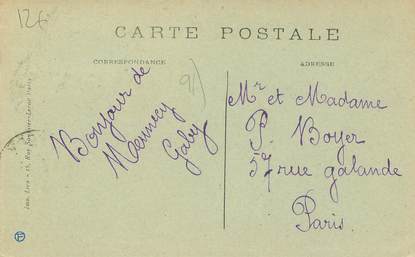 126
CARTE POSTALE
CORRESPONDANCE
ADRESSE
91
Bonjour de
Mennecy
Gaby
Mr et Madame
P. Boyer
57 rue galande
Paris.